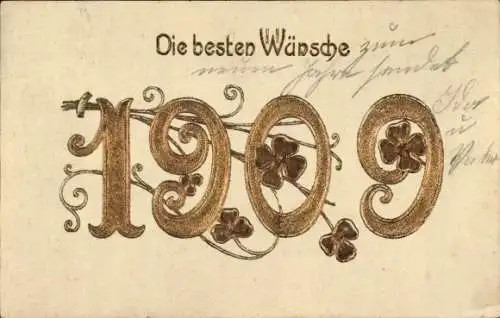 Die besten Wünsche zum
neuen Jahre sendet
Ida
u
1909